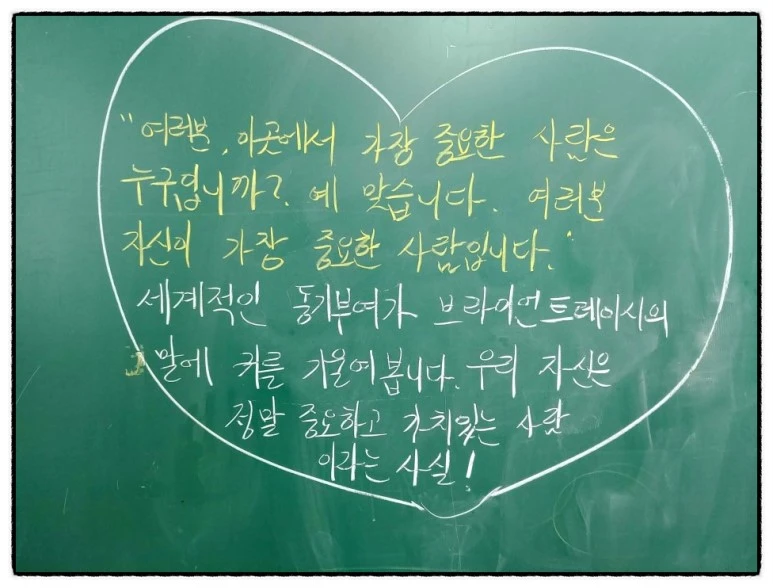 "여러분, 이곳에서 가장 중요한 사람은
누구입니까? 예 맞습니다. 여러분
자신이 가장 중요한 사람입니다."
세계적인 동기부여가 브라이언트레이시의
말에 귀를 기울여봅니다. 우리 자신은
정말 중요하고 가치있는 사람
이라는 사실!